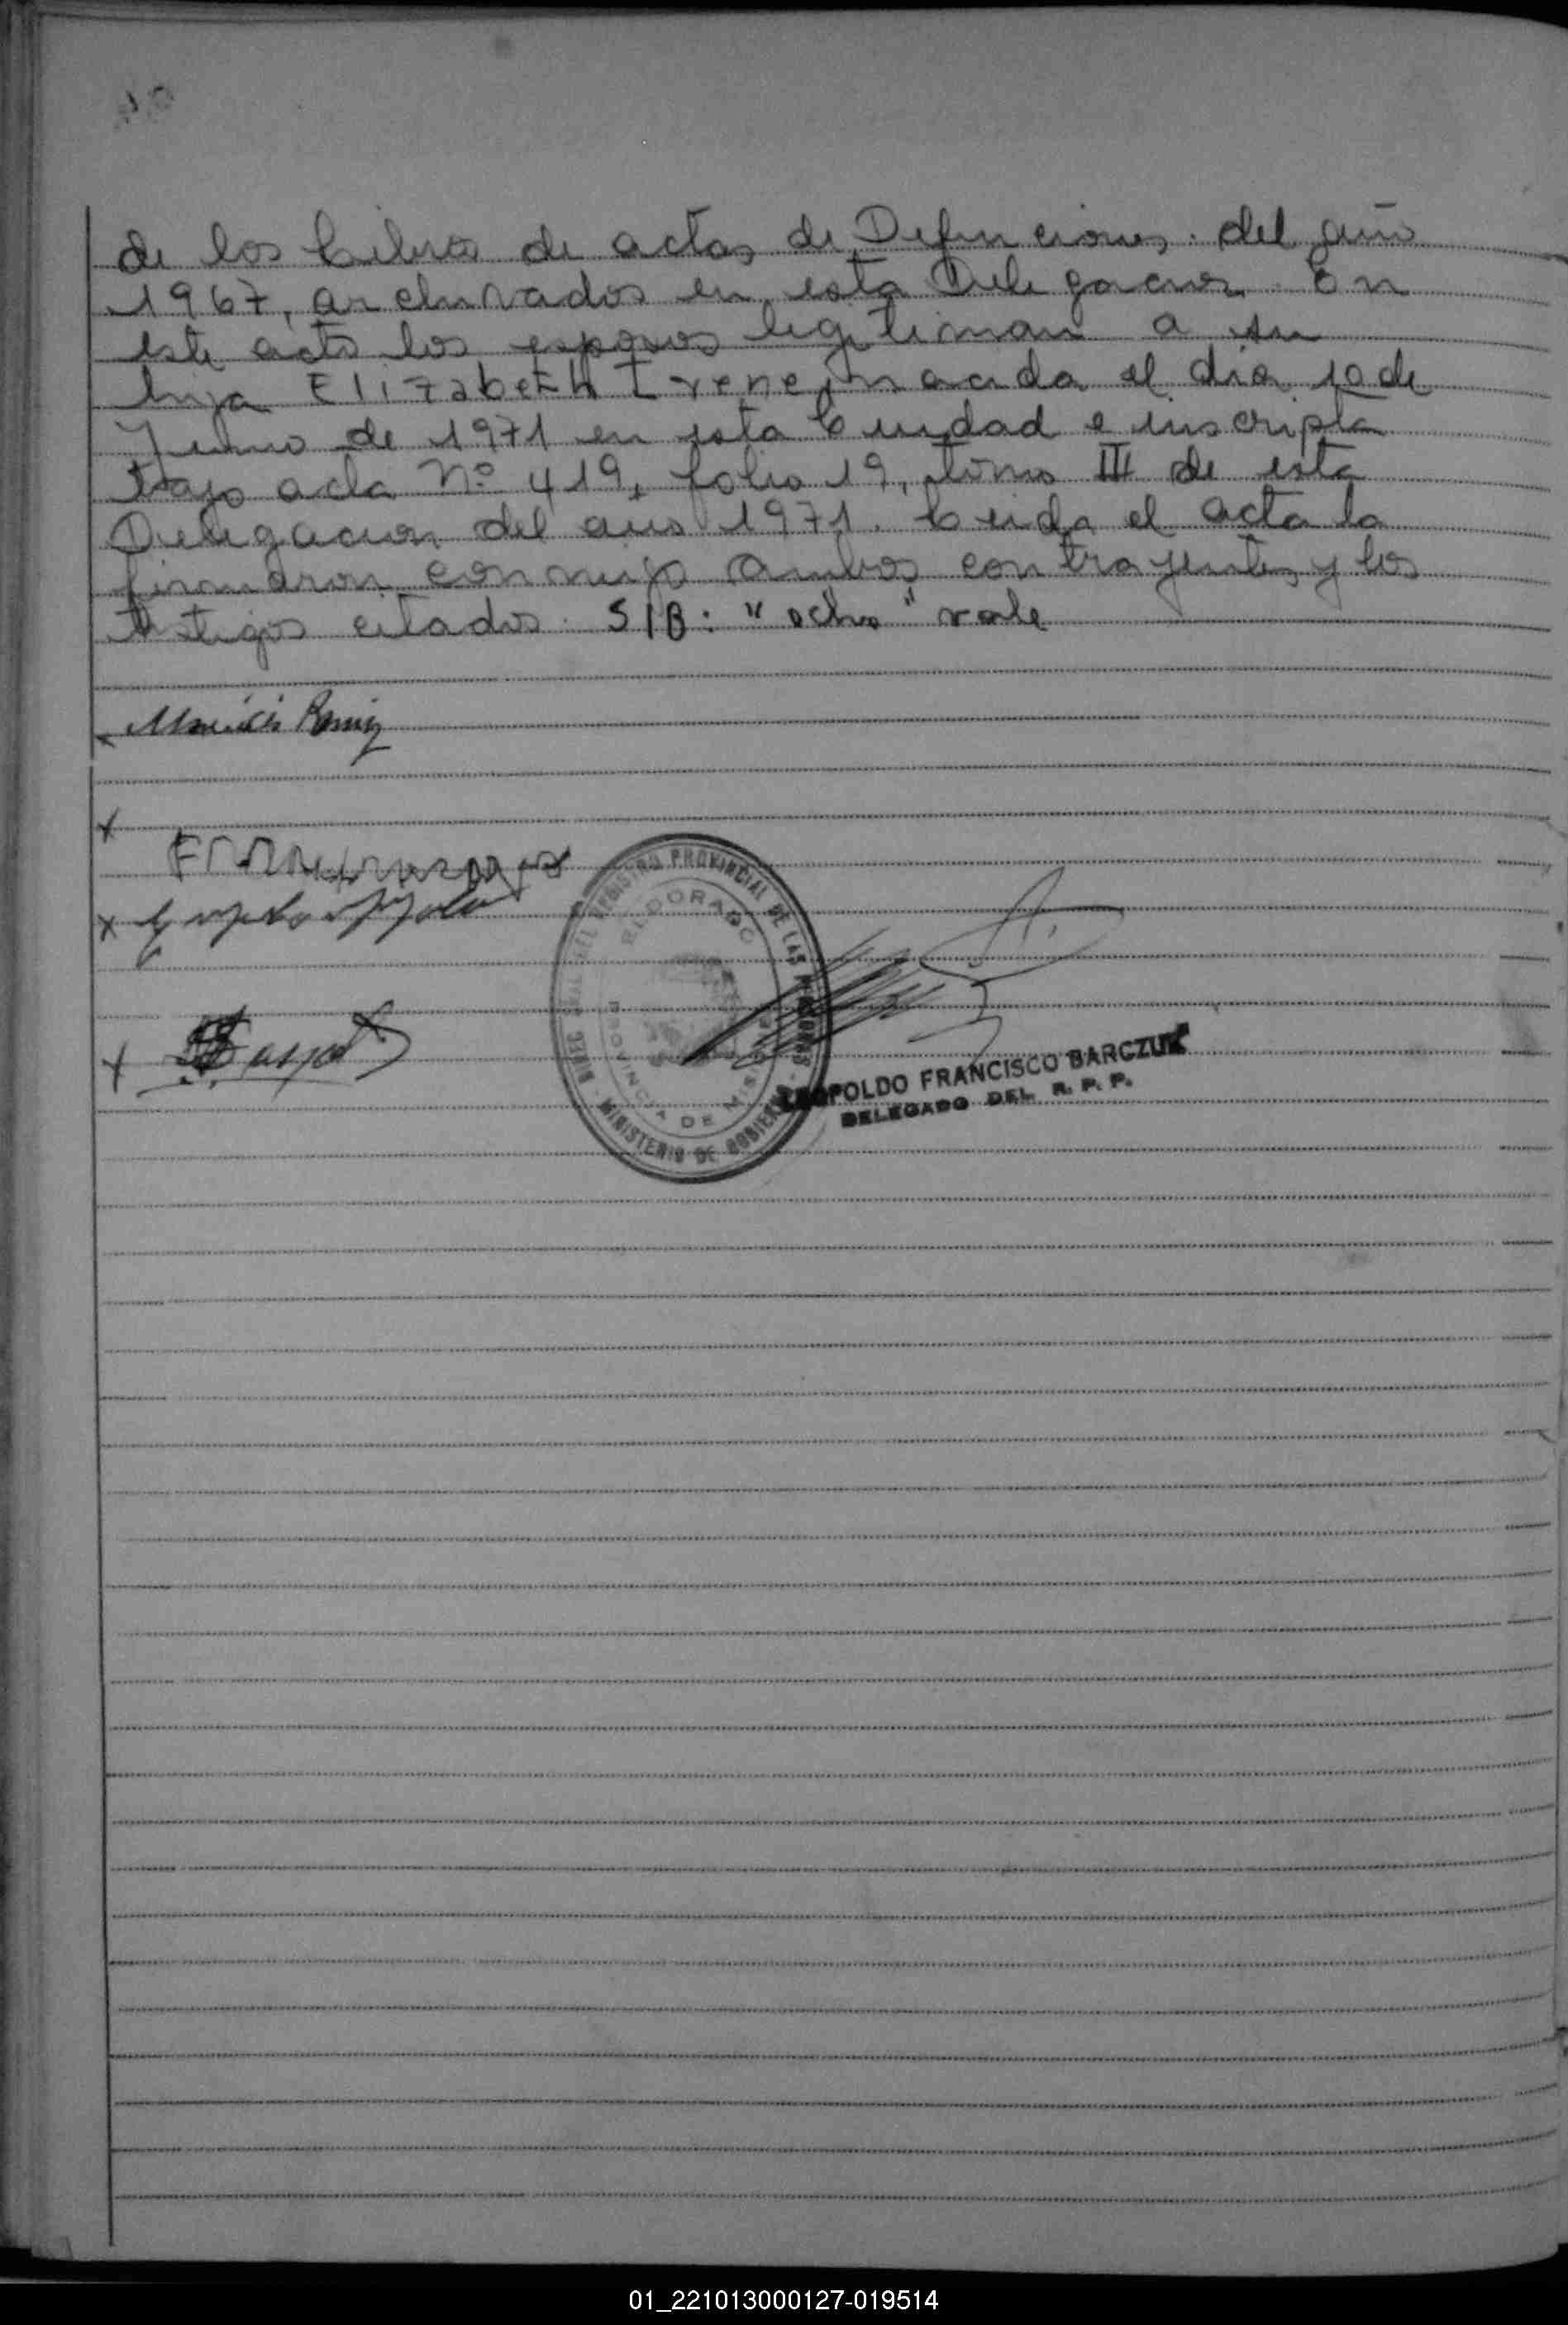 de los Libros de actas de Defunciones. del año
1967, archivados en esta Delegacion. En
este acto los esposos legitiman a su
hija Elizabeth Irene, nacida el dia 10 de
Junio de 1971 en esta Ciudad e inscripta
bajo acta Nº 419, folio 19, tomo III de esta
Delegacion del año 1971. Leida el acta la
firmaron conmigo ambos contrayentes y los
testigos citados. S/B: "ocho" vale
REGISTRO PROVINCIAL DE LAS PERSONAS
ELDORADO
PROVINCIA DE MISIONES
MINISTERIO DE GOBIERNO
LEOPOLDO FRANCISCO BARCZUK
DELEGADO DEL R. P. P.
01_221013000127-019514